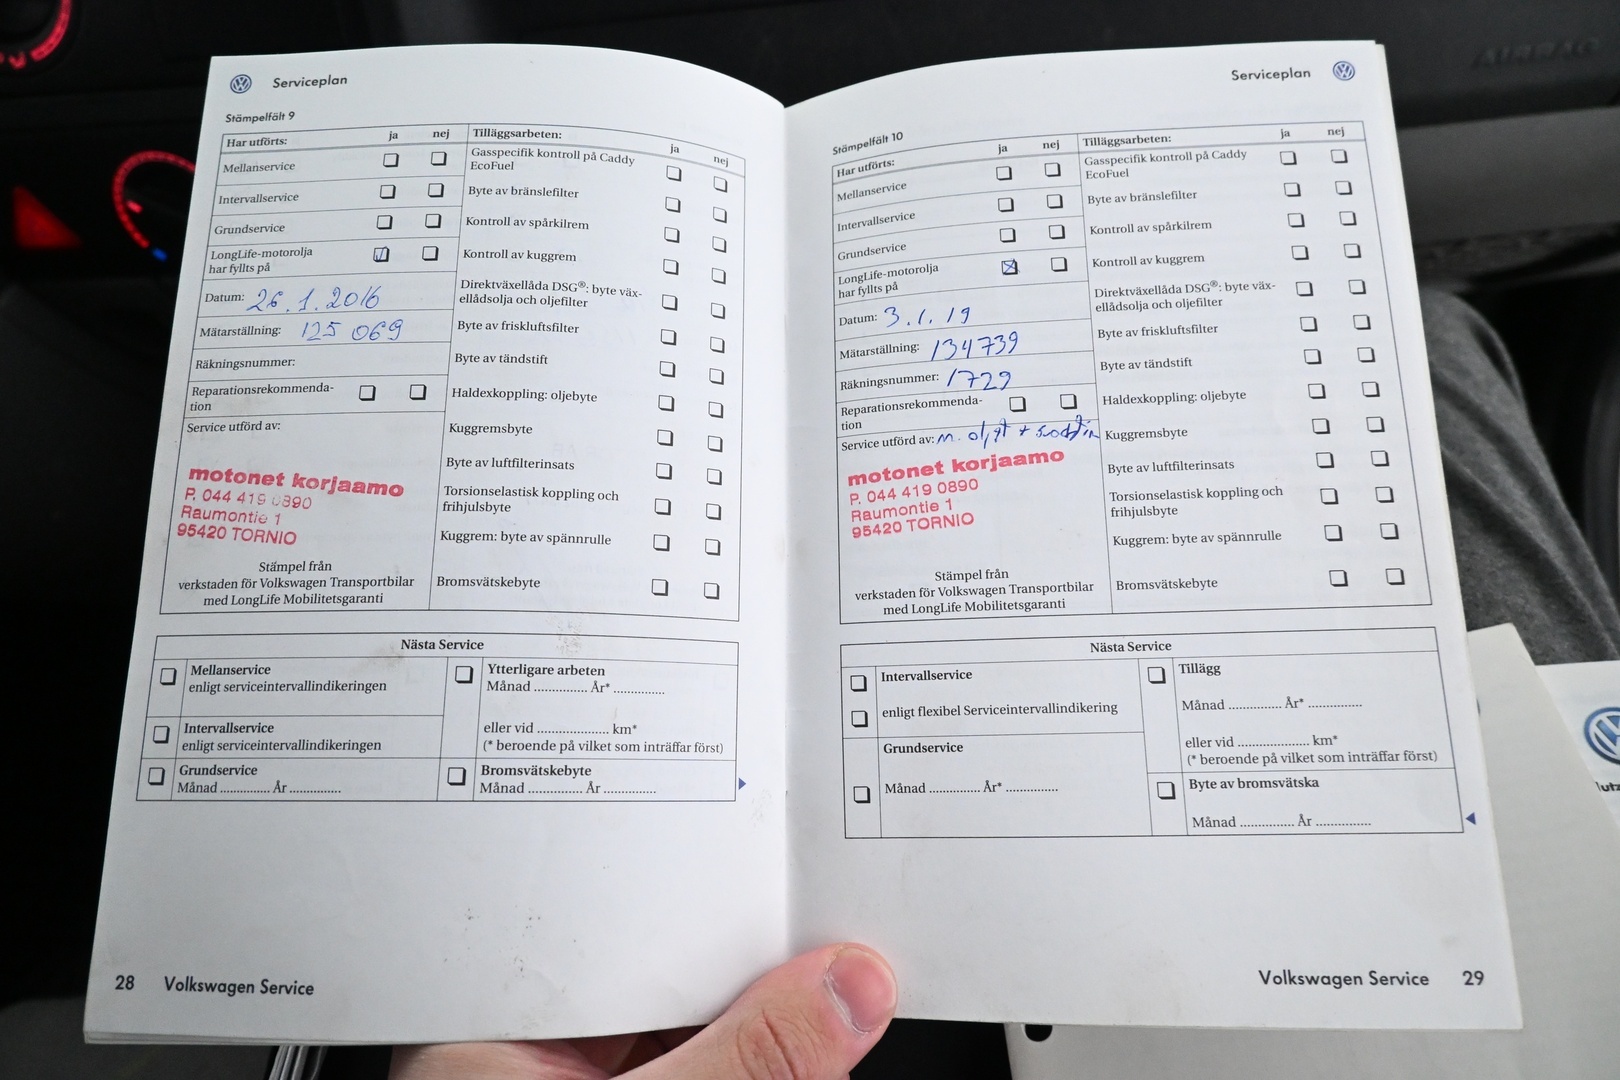 Serviceplan
Stämpelfält 9
Har utförts: ja nej
Mellanservice
Intervallservice
Grundservice
LongLife-motorolja
har fyllts på
Datum: 26.1.2016
Mätarställning: 125 069
Räkningsnummer:
Reparationsrekommenda-
tion
Service utförd av:
motonet korjaamo
P. 044 419 0890
Raumontie 1
95420 TORNIO
Stämpel från
verkstaden för Volkswagen Transportbilar
med LongLife Mobilitetsgaranti
Tilläggsarbeten: ja nej
Gasspecifik kontroll på Caddy
EcoFuel
Byte av bränslefilter
Kontroll av spårkilrem
Kontroll av kuggrem
Direktväxellåda DSG®: byte väx-
ellådsolja och oljefilter
Byte av friskluftsfilter
Byte av tändstift
Haldexkoppling: oljebyte
Kuggremsbyte
Byte av luftfilterinsats
Torsionselastisk koppling och
frihjulsbyte
Kuggrem: byte av spännrulle
Bromsvätskebyte
Nästa Service
Mellanservice
enligt serviceintervallindikeringen
Intervallservice
enligt serviceintervallindikeringen
Grundservice
Månad ............... År ...............
Ytterligare arbeten
Månad ............... År* ...............
eller vid .................... km*
(* beroende på vilket som inträffar först)
Bromsvätskebyte
Månad ............... År ...............
28 Volkswagen Service
Serviceplan
Stämpelfält 10
Har utförts: ja nej
Mellanservice
Intervallservice
Grundservice
LongLife-motorolja
har fyllts på
Datum: 3.1.19
Mätarställning: 134739
Räkningsnummer: 1729
Reparationsrekommenda-
tion
Service utförd av: m.
motonet korjaamo
P. 044 419 0890
Raumontie 1
95420 TORNIO
Stämpel från
verkstaden för Volkswagen Transportbilar
med LongLife Mobilitetsgaranti
Tilläggsarbeten: ja nej
Gasspecifik kontroll på Caddy
EcoFuel
Byte av bränslefilter
Kontroll av spårkilrem
Kontroll av kuggrem
Direktväxellåda DSG®: byte väx-
ellådsolja och oljefilter
Byte av friskluftsfilter
Byte av tändstift
Haldexkoppling: oljebyte
Kuggremsbyte
Byte av luftfilterinsats
Torsionselastisk koppling och
frihjulsbyte
Kuggrem: byte av spännrulle
Bromsvätskebyte
Nästa Service
Intervallservice
enligt flexibel Serviceintervallindikering
Grundservice
Månad ............... År* ...............
Tillägg
Månad ............... År* ...............
eller vid .................... km*
(* beroende på vilket som inträffar först)
Byte av bromsvätska
Månad ............... År ...............
Volkswagen Service 29
AIRBAG